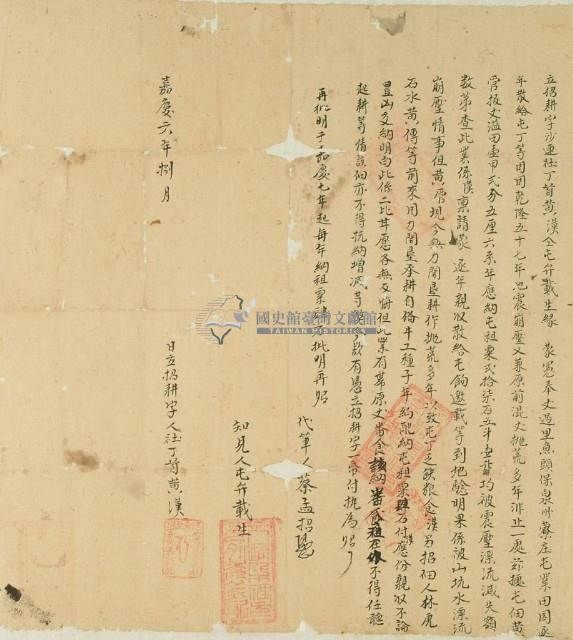 立招耕字沙連社丁首黃漢仝屯弁載生緣　蒙憲奉丈過里魚頭保泉州藔庄屯業田園逐
年散給屯丁等因因乾隆五十七年地震崩壓又兼原前混丈拋荒多年非止一處茲據屯佃黃
管报丈溢田壹甲弍分五厘六系年應納屯租粟弍拾柒石五斗均被震壓漂流減失額
数苐查此業係漢稟請蒙　逐年親収散給屯餉邀載等到地驗明果係被山坑水漂流
崩壓情事但黃 現今無力開墾耕作拋荒多年以致屯丁乏缺粮食漢另招佃人林虎
石水黃傳等前來用力開墾承耕自俻牛工種子年約配納屯租粟肆石付漢應份親収不論
豐凶交納明白此係二比甘愿各無反悔但此業有帶原丈番食 納番食租在 不得任聽
起耕等情該佃亦不得抗納增減等獘今欲有憑立招耕字一帋付执為炤
再批明于嘉慶七年起每年納租粟肆 批明再炤
代筆人蔡孟招
知見人屯弁載生
日立招耕字人社丁首黃漢
嘉慶六年捌　月
國史館臺灣文獻館
TAIWAN HISTORICA